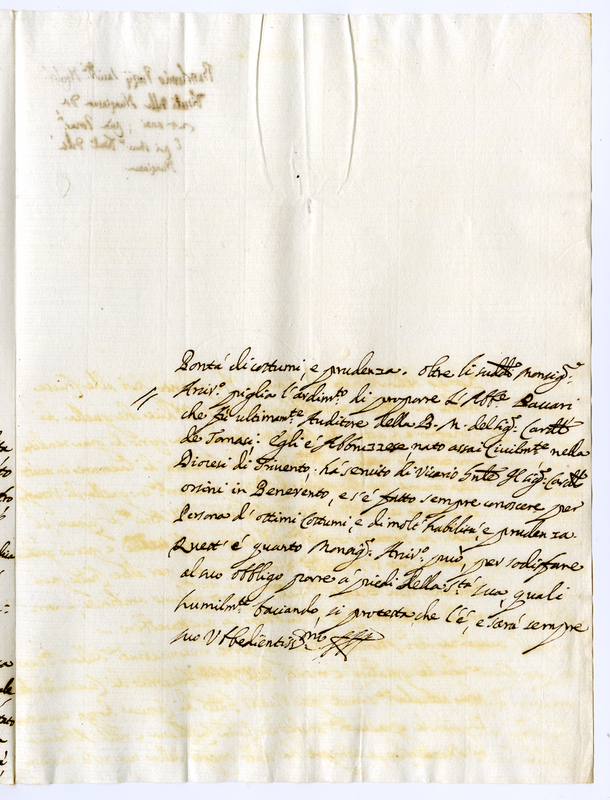 Bontá di costumi, e prudenza. oltre li sudd.ti Monsig.re
Arciv.o piglia l'ardim.to di proporre l'Abb.e Baccari
che fú ultimam.te Auditore della B. M. del Sig.r Card.l
de Tornasi: egli é Abbruzzese, nato assai Civilm.te nella
Diocesi di Trivento; há servito di Vicario Gn.le Il Sig.r Card.le
orsini in Benevento, e s'é fatto sempre conoscere per
Persona d'ottimi Costumi, e di molt' habilitá e prudenza.
Quest' é quanto Monsig.r Arciv.o può, per sodisfare
al suo obbligo porre á piedi della S.tá sua, quali
humilm.te baciando, si protesta, che l'é, e sará sempre
suo Ubbedientiss.mo